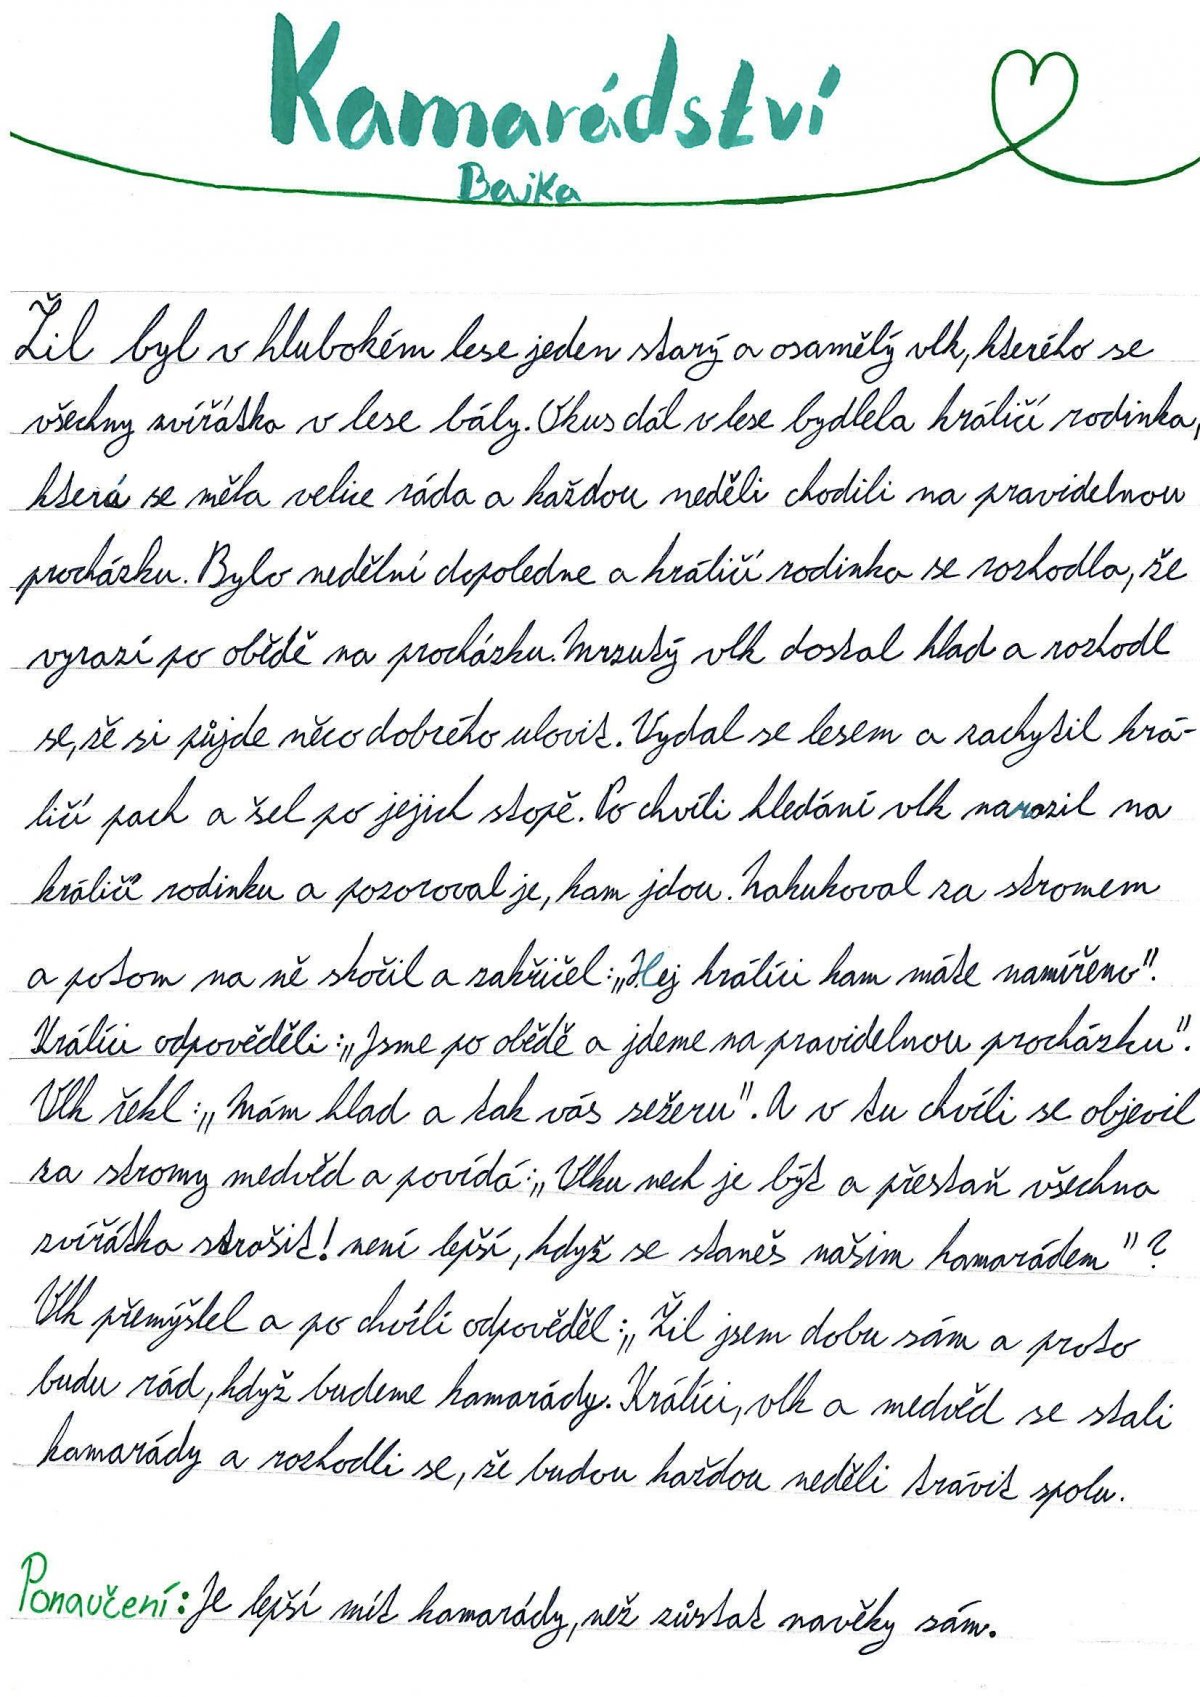 Kamarádství
Bajka
Žil byl v hlubokém lese jeden starý a osamělý vlk, kterého se
všechny zvířátka v lese bály. Okus dál v lese bydlela králičí rodinka,
která se měla velice ráda a každou neděli chodili na pravidelnou
procházku. Bylo nedělní dopoledne a králičí rodinka se rozhodla, že
vyrazí po obědě na procházku. Mrzutý vlk dostal hlad a rozhodl
se, že si půjde něco dobrého ulovit. Vydal se lesem a zachytil krá-
ličí pach a šel po jejich stopě. Po chvíli hledání vlk narazil na
králičí rodinku a pozoroval je, kam jdou. Nakukoval za stromem
a potom na ně skočil a zakřičel: „Hej králíci kam máte namířeno".
Králíci odpověděli: „Jsme po obědě a jdeme na pravidelnou procházku".
Vlk řekl: „Mám hlad a tak vás sežeru". A v tu chvíli se objevil
za stromy medvěd a povídá: „Vlku nech je být a přestaň všechna
zvířátka strašit! není lepší, když se staneš našim kamarádem"?
Vlk přemýšlel a po chvíli odpověděl: „Žil jsem dobu sám a proto
budu rád, když budeme kamarády. Králíci, vlk a medvěd se stali
kamarády a rozhodli se, že budou každou neděli trávit spolu.
Ponaučení: Je lepší mít kamarády, než zůstat navěky sám.